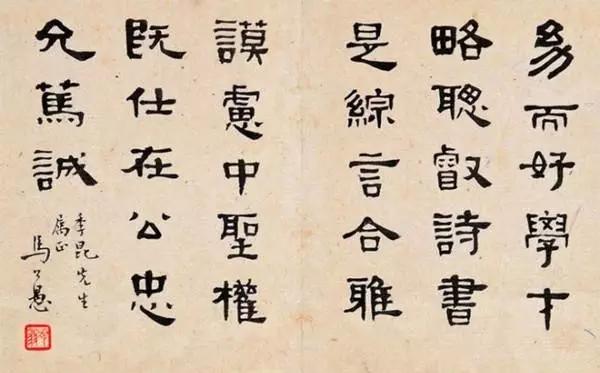 幼而好學才
略聰叡詩書
是綜言合雅
謨慮中聖權
既仕在公忠
允篤誠
季昆先生
属正
馬公愚